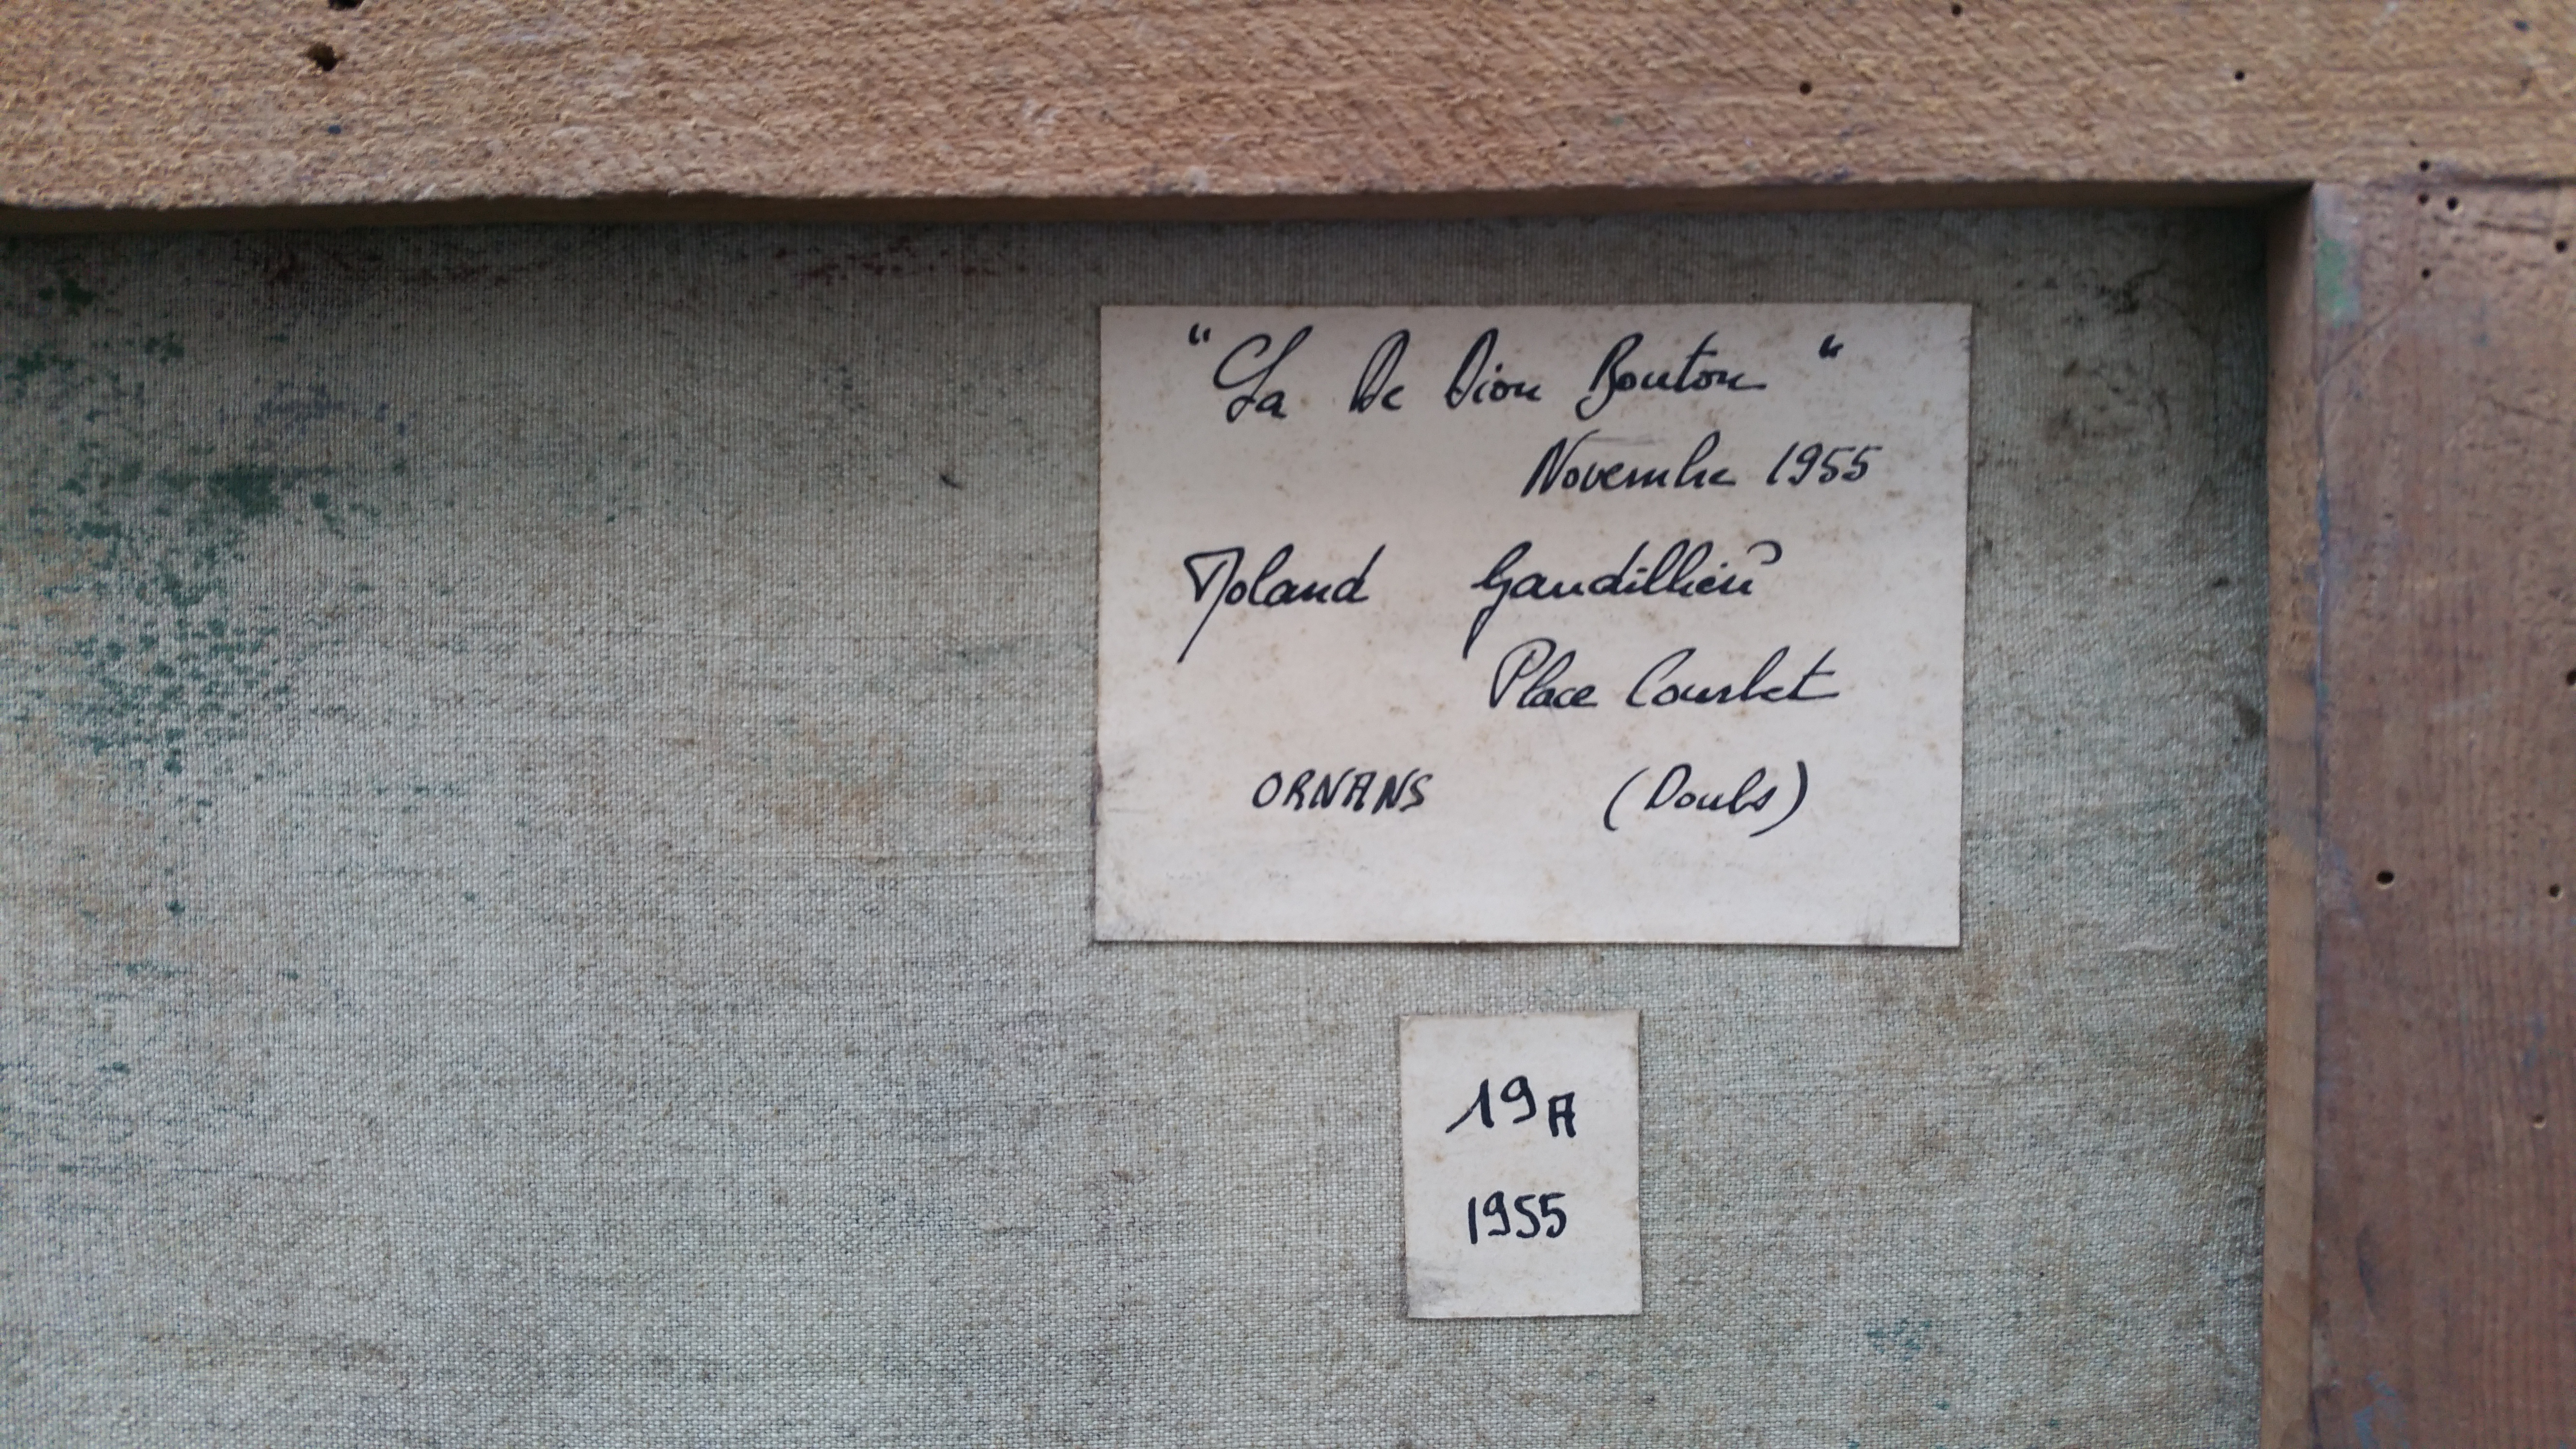 "La De Dion Bouton"
Novembre 1955
Roland Gaudillière
Place Courbet
ORNANS (Doubs)
19A
1955